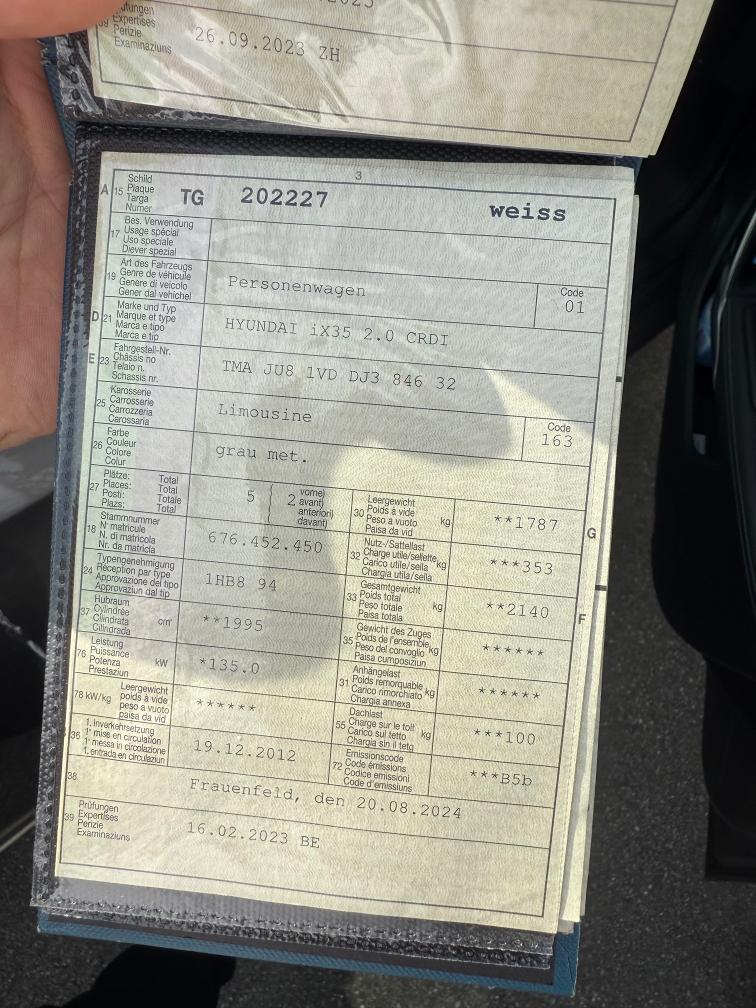 39 Expertises
Perizie
Examinaziuns
26.09.2023 ZH
3
A 15 Schild
Plaque
Targa
Numer
TG 202227 weiss
17 Bes. Verwendung
Usage spécial
Uso speciale
Diever spezial
19 Art des Fahrzeugs
Genre de véhicule
Genere di veicolo
Gener dal vehichel
Personenwagen
Code
01
D 21 Marke und Typ
Marque et type
Marca e tipo
Marca e tip
HYUNDAI iX35 2.0 CRDI
E 23 Fahrgestell-Nr.
Châssis no
Telaio n.
Schassis nr.
TMA JU8 1VD DJ3 846 32
25 Karosserie
Carrosserie
Carrozzeria
Carossaria
Limousine
Code
163
26 Farbe
Couleur
Colore
Colur
grau met.
27 Plätze: Total
Places: Total
Posti: Totale
Plazs: Total
5 2 vorne)
avant)
anteriori)
davant)
30 Leergewicht
Poids à vide
Peso a vuoto kg
Paisa da vid
**1787
G
18 Stammnummer
N° matricule
N. di matricola
Nr. da matricla
676.452.450
32 Nutz-/Sattellast
Charge utile/sellette kg
Carico utile/sella
Chargia utila/sella
***353
24 Typengenehmigung
Réception par type
Approvazione del tipo
Approvaziun dal tip
1HB8 94
33 Gesamtgewicht
Poids total
Peso totale kg
Paisa totala
**2140
F
37 Hubraum
Cylindrée
Cilindrata cm³
Cilindrada
**1995
35 Gewicht des Zuges
Poids de l'ensemble
Peso del convoglio kg
Paisa cumposiziun
******
76 Leistung
Puissance
Potenza kW
Prestaziun
*135.0
31 Anhängelast
Poids remorquable
Carico rimorchiato kg
Chargia annexa
******
78 kW/kg Leergewicht
poids à vide
peso a vuoto
paisa da vid
******
55 Dachlast
Charge sur le toit
Carico sul tetto kg
Chargia sin il tetg
***100
36 1. Inverkehrsetzung
1re mise en circulation
1a messa in circolazione
1. entrada en circulaziun
19.12.2012
72 Emissionscode
Code émissions
Codice emissioni
Code d'emissiuns
***B5b
38
Frauenfeld, den 20.08.2024
39 Prüfungen
Expertises
Perizie
Examinaziuns
16.02.2023 BE